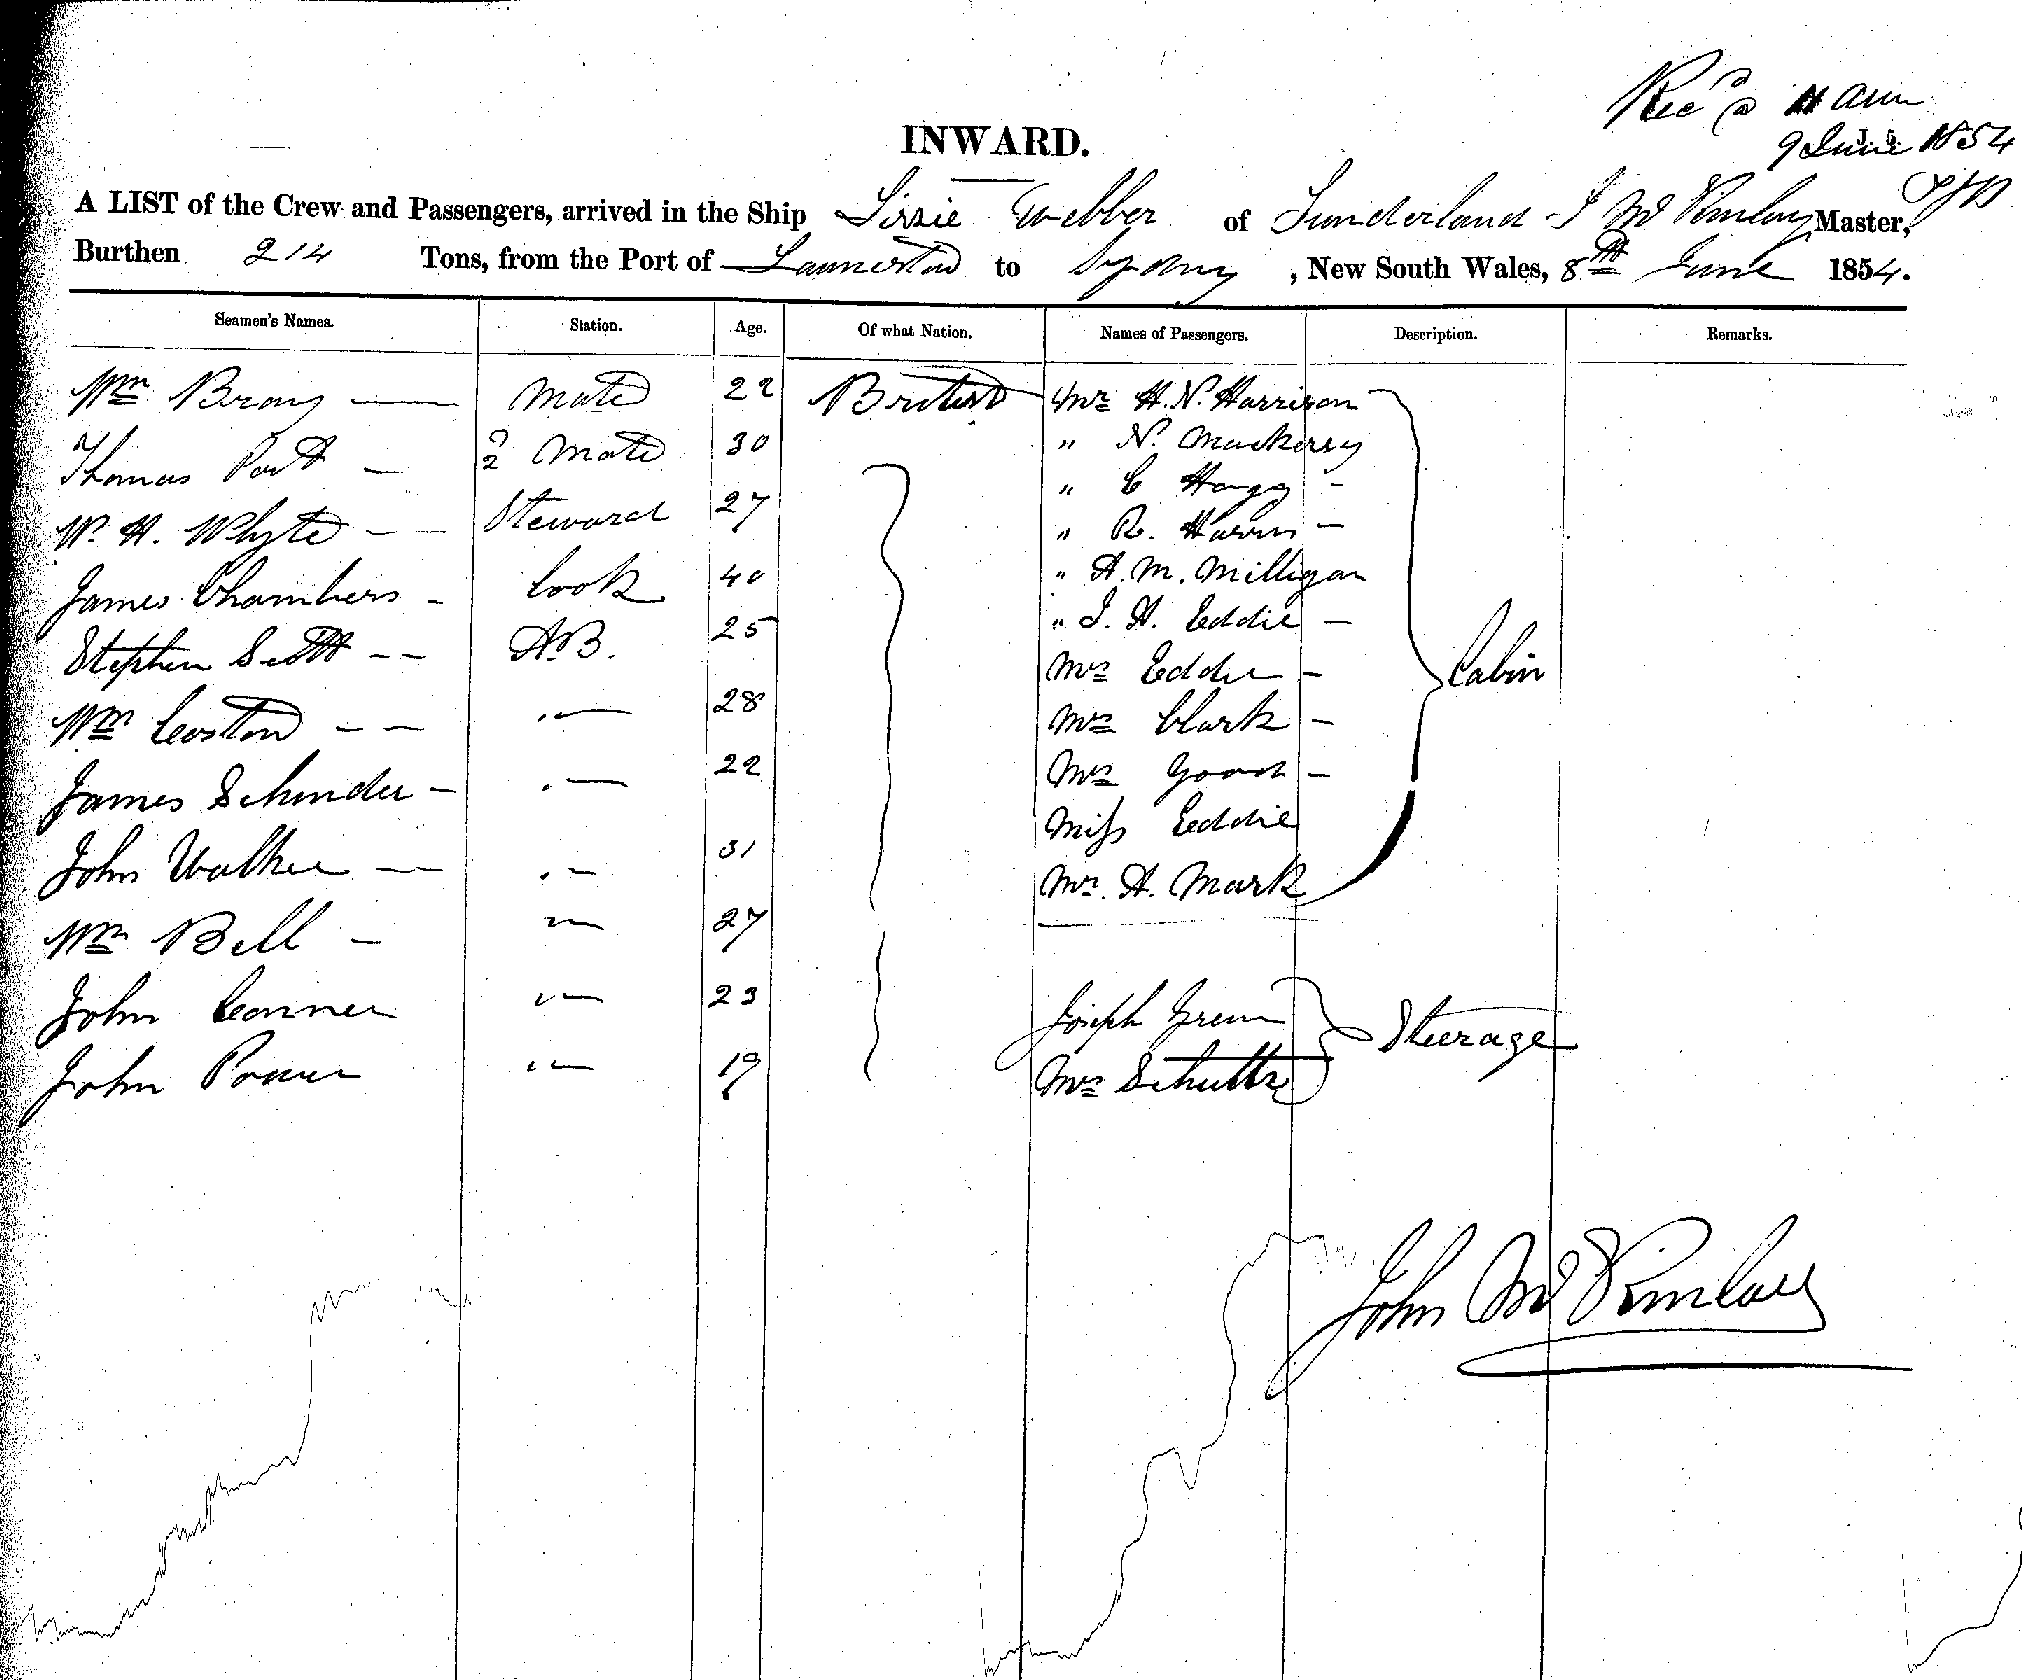 Rec'd @ 11 am
9 June 1854
INWARD.
A LIST of the Crew and Passengers, arrived in the Ship Lizzie Webber of Sunderland J McKinlay Master,
Burthen 214 Tons, from the Port of Launceston to Sydney, New South Wales, 8th June 1854.
Seamen's Names. Station. Age. Of what Nation. Names of Passengers. Description. Remarks.
Wm Bray Mate 22 British Mr H. N. Harrison
Thomas 2 Mate 30 " N. Mackersy
W. H. Whyte Steward 27 " C Hogg
" R. Harris
James Chambers Cook 40 " A. M. Milligan
Stephen Scott A.B. 25 " J. H. Eddie
Mrs Eddie Cabin
Wm Coston " 28 Mrs Clark
James " 22 Mrs
Miss Eddie
John Walker " 31 Mr. H. Mark
Wm Bell " 27
John Conner " 23 Joseph Green Steerage
John Power " 19 Mrs Schultz
John McKinlay